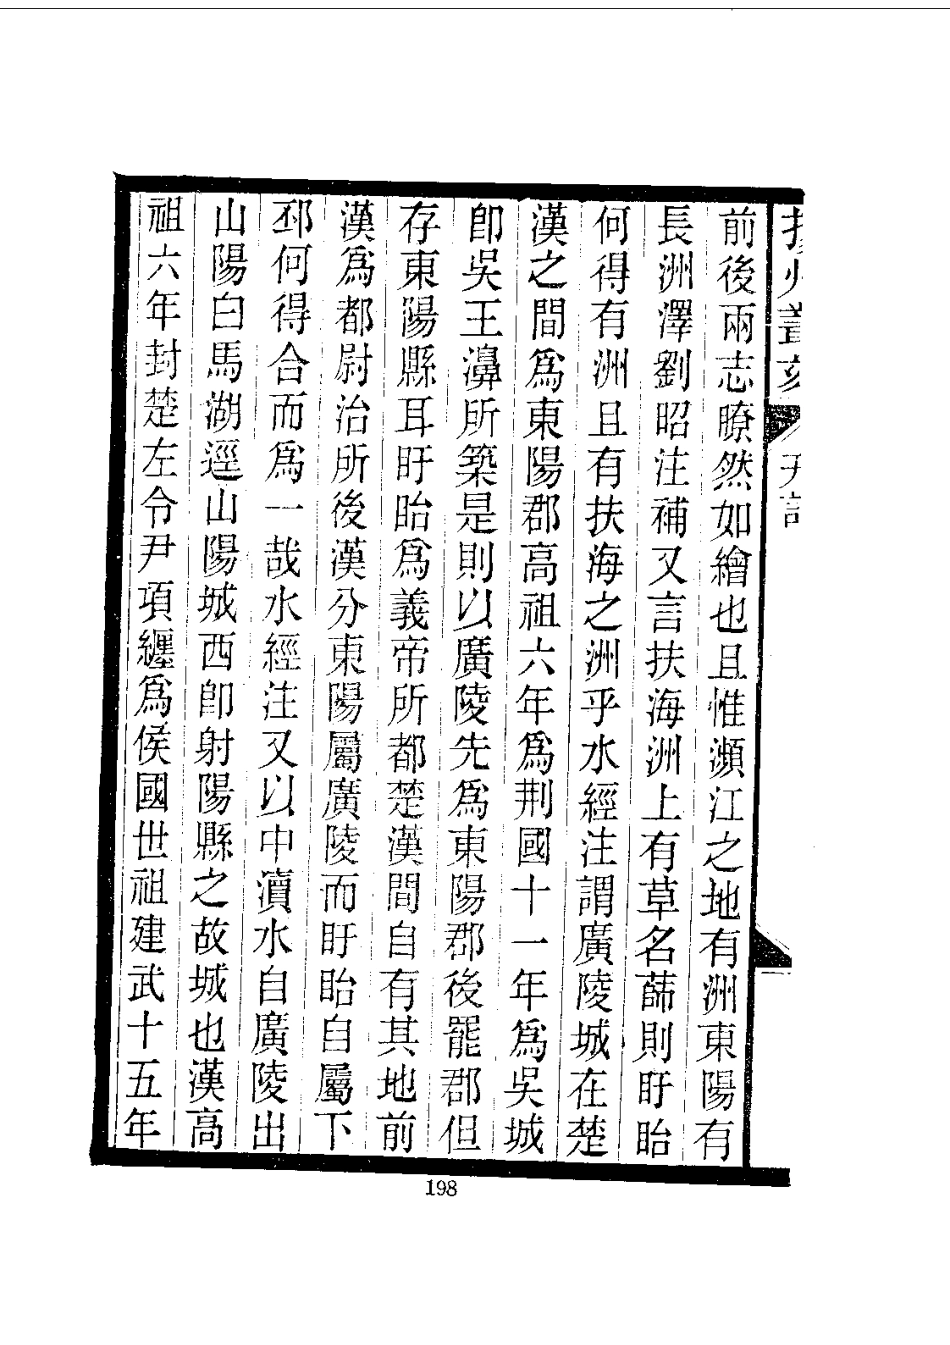 前後兩志瞭然如繪也且惟瀕江之地有洲東陽有
長洲澤劉昭注補又言扶海洲上有草名蒒則盱眙
何得有洲且有扶海之洲乎水經注謂廣陵城在楚
漢之間爲東陽郡高祖六年爲荆國十一年爲吳城
卽吳王濞所築是則以廣陵先爲東陽郡後罷郡但
存東陽縣耳盱眙爲義帝所都楚漢間自有其地前
漢爲都尉治所後漢分東陽屬廣陵而盱眙自屬下
邳何得合而爲一哉水經注又以中瀆水自廣陵出
山陽白馬湖逕山陽城西卽射陽縣之故城也漢高
祖六年封楚左令尹項纏爲侯國世祖建武十五年
198